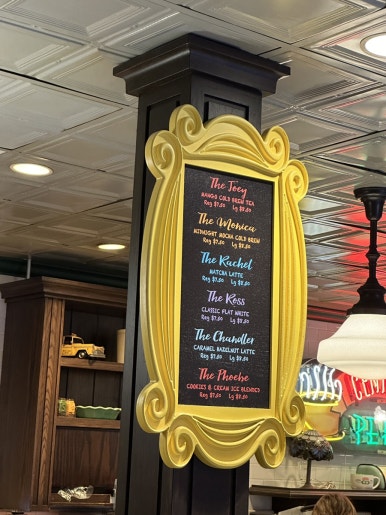 The Joey
MANGO COLD BREW TEA
Reg $7.50 Lg $8.50
The Monica
MIDNIGHT MOCHA COLD BREW
Reg $7.50 Lg $8.50
The Rachel
MATCHA LATTE
Reg $7.50 Lg $8.50
The Ross
CLASSIC FLAT WHITE
Reg $7.50 Lg $8.50
The Chandler
CARAMEL HAZELNUT LATTE
Reg $7.50 Lg $8.50
The Phoebe
COOKIES & CREAM ICE BLENDED
Reg $7.50 Lg $8.50